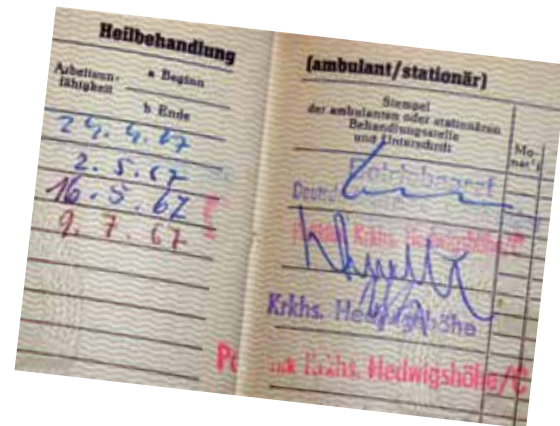 Heilbehandlung
Arbeitsun-
fähigkeit
a Beginn
b Ende
24. 4. 67
2. 5. 67
16. 5. 67
9. 7. 67
(ambulant/stationär)
Stempel
der ambulanten oder stationären
Behandlungsstelle
und Unterschrift
Mo-
nat
Betriebsarzt
Krkhs. Hedwigshöhe/C
Krkhs. Hedwigshöhe
Krkhs. Hedwigshöhe/C